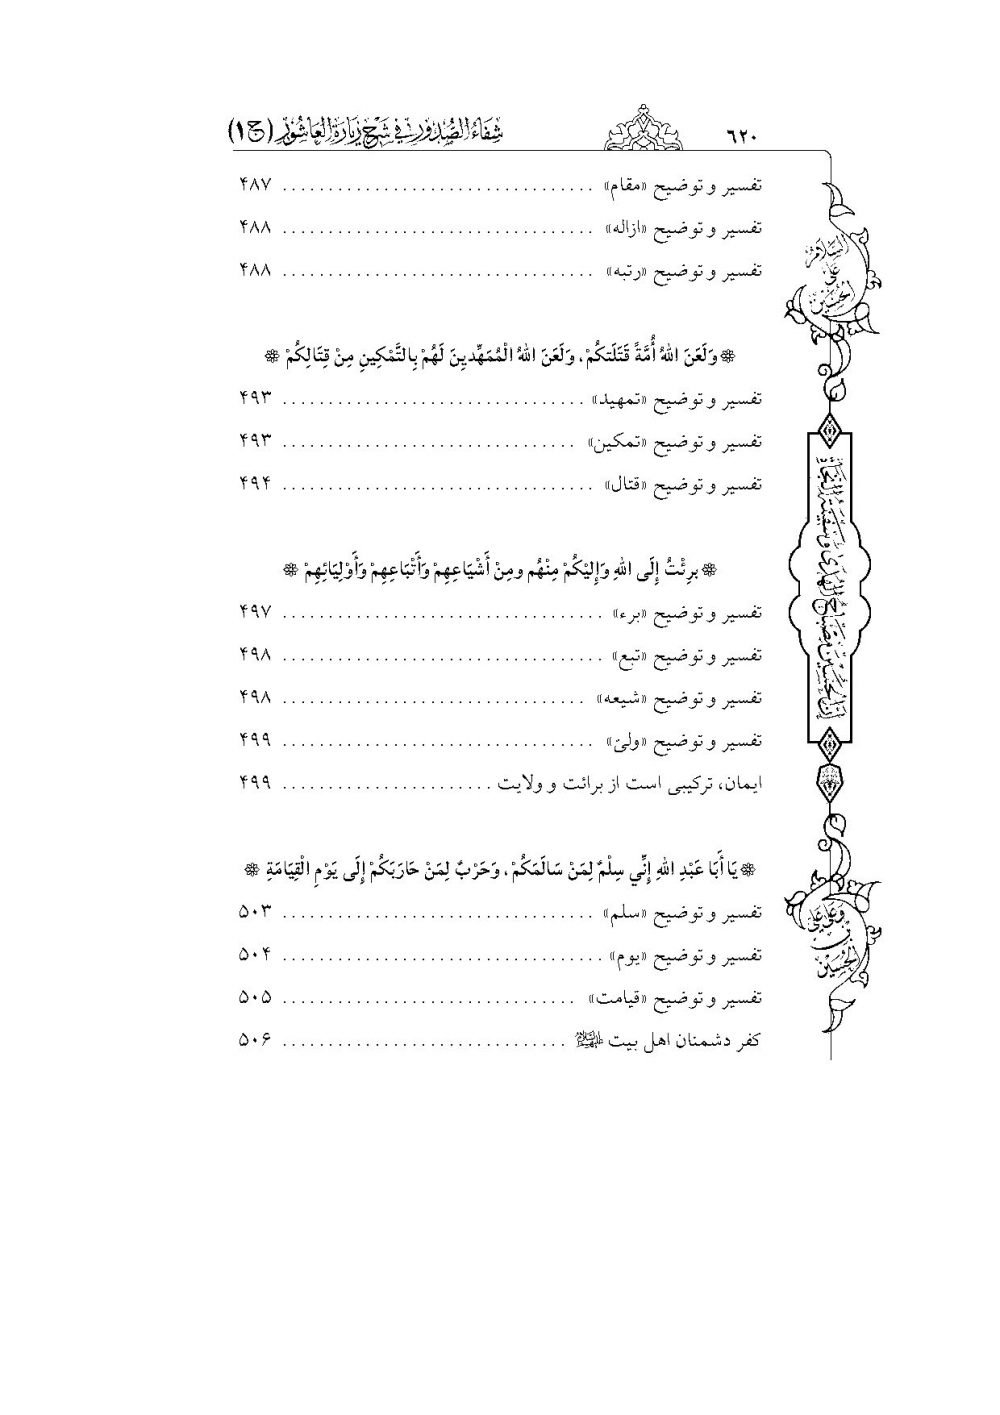 ۶۲۰ شِفَاءُ الصُّدُور فِي شَرْحِ زِيَارَةِ الْعَاشُور (ج ۱)
تفسیر و توضیح «مقام» ................................. ۴۸۷
تفسیر و توضیح «ازاله» ................................. ۴۸۸
تفسیر و توضیح «رتبه» ................................. ۴۸۸
❁ وَلَعَنَ اللهُ أُمَّةً قَتَلَتكُمْ، وَلَعَنَ اللهُ الْمُمَهِّدِينَ لَهُمْ بِالتَّمْكِينِ مِنْ قِتَالِكُمْ ❁
تفسیر و توضیح «تمهید» ................................. ۴۹۳
تفسیر و توضیح «تمکین» ................................ ۴۹۳
تفسیر و توضیح «قتال» ................................. ۴۹۴
❁ برِئْتُ إِلَى اللهِ وَإِلَيْكُمْ مِنْهُم ومِنْ أَشْيَاعِهِمْ وَأَتْبَاعِهِمْ وَأَوْلِيَائِهِمْ ❁
تفسیر و توضیح «برء» ................................... ۴۹۷
تفسیر و توضیح «تبع» ................................... ۴۹۸
تفسیر و توضیح «شیعه» ................................. ۴۹۸
تفسیر و توضیح «ولیّ» .................................. ۴۹۹
ایمان، ترکیبی است از برائت و ولایت ....................... ۴۹۹
❁ يَا أَبَا عَبْدِ اللهِ إِنِّي سِلْمٌ لِمَنْ سَالَمَكُمْ، وَحَرْبٌ لِمَنْ حَارَبَكُمْ إِلَى يَوْمِ الْقِيَامَةِ ❁
تفسیر و توضیح «سلم» .................................. ۵۰۳
تفسیر و توضیح «یوم» ................................... ۵۰۴
تفسیر و توضیح «قیامت» ................................ ۵۰۵
کفر دشمنان اهل بیت علیهم‌السلام ............................... ۵۰۶
السَّلامُ
عَلَى
الحُسَيْنِ
إنَّ الْحُسَيْنَ مِصْبَاحُ الْهُدَى وَسَفِينَةُ النَّجَاةِ
وَعَلَى عَلِيِّ
بْنِ
الْحُسَيْنِ